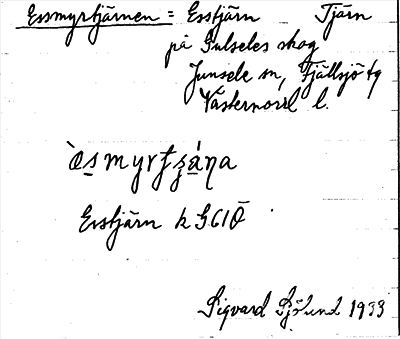 Essmyrtjärnen = Esstjärn Tjärn
på Gulseles skog
Junsele sn, Fjällsjö tg
Västernorrl l.
Esstjärn k G61Ö
Sigvard Sjölund 1933